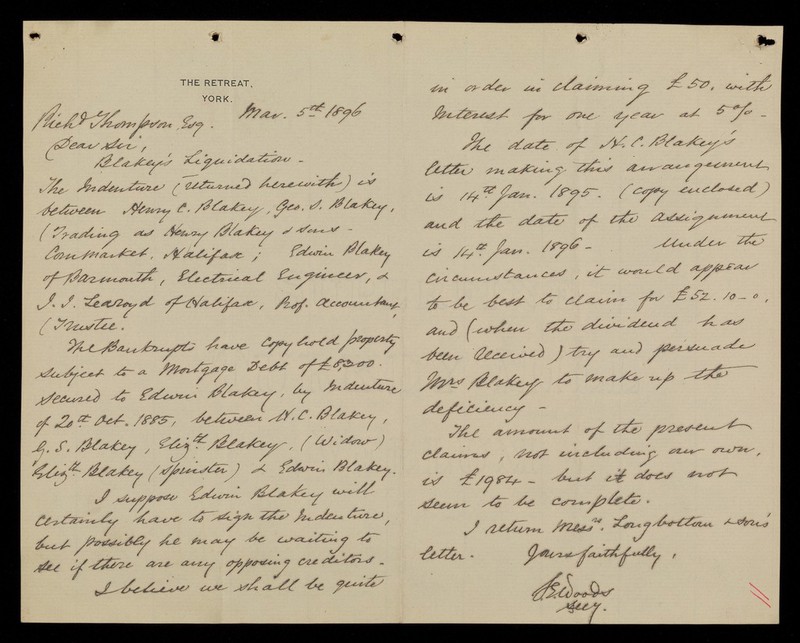 THE RETREAT,
YORK.
Mar. 5th 1896
Richd Thompson Esq.
Dear Sir,
Blakey's Liquidation -
The Indenture (returned herewith) is
between Henry C. Blakey, Geo. S. Blakey,
(Trading as Henry Blakey & Sons -
Cornmarket, Halifax ; Edwin Blakey
of Barmouth, Electrical Engineer, &
J. I. Learoyd of Halifax, Prof. Accountant,
(Trustee.
The Bankrupts have copyhold property
subject to a Mortgage Debt of £8300.
secured to Edwin Blakey, by Indenture
of 20th Oct. 1885, between H.C. Blakey,
G. S. Blakey, Elizth Blakey, (Widow)
Elizth Blakey (spinster) & Edwin Blakey.
I suppose Edwin Blakey will
certainly have to sign the Indenture,
but possibly he may be waiting to
see if there are any opposing creditors -
I believe we shall be quite
in order in claiming £50. with
Interest for one year at 5% -
The date of H. C. Blakey's
letter making this arrangement
is 14th Jan. 1895. (copy enclosed)
and the date of the assignment
is 14th Jan. 1896 - Under the
circumstances, it would appear
to be best to claim for £52. 10-0,
and (when the dividend has
been received) try and persuade
Mrs Blakey to make up the
deficiency -
The amount of the present
claims, not including our own,
is £1984 - but it does not
seem to be complete.
I return Messrs. Longbottom & Son's
letter. Yours faithfully,
Woods
Secy.